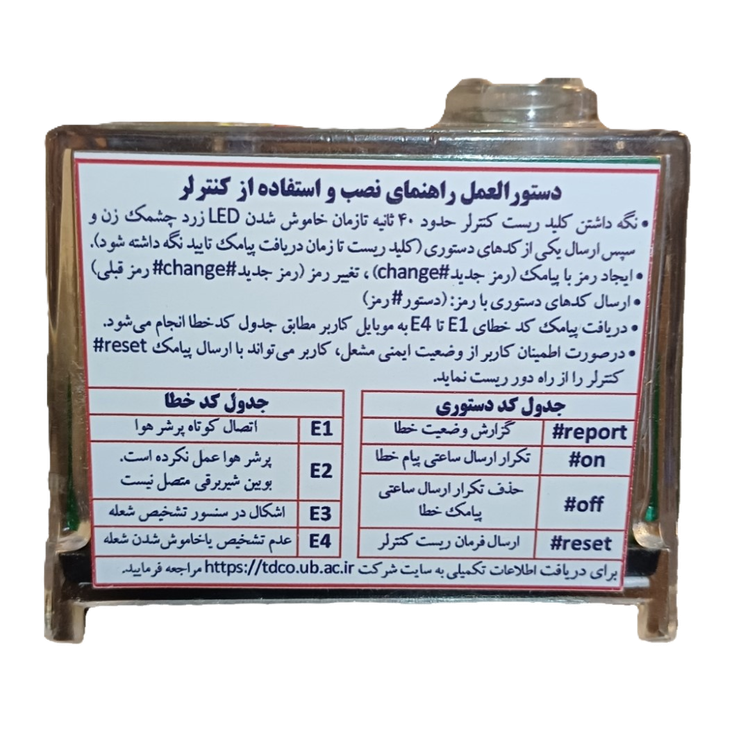 دستورالعمل راهنمای نصب و استفاده از کنترلر
• نگه داشتن کلید ریست کنترلر حدود ۴۰ ثانیه تازمان خاموش شدن LED زرد چشمک زن و
سپس ارسال یکی از کدهای دستوری (کلید ریست تا زمان دریافت پیامک تایید نگه داشته شود).
• ایجاد رمز با پیامک (رمز جدید#change) ، تغییر رمز (رمز جدید#change# رمز قبلی)
• ارسال کدهای دستوری با رمز: (دستور# رمز)
• دریافت پیامک کد خطای E1 تا E4 به موبایل کاربر مطابق جدول کدخطا انجام می‌شود.
• درصورت اطمینان کاربر از وضعیت ایمنی مشعل، کاربر می‌تواند با ارسال پیامک reset#
کنترلر را از راه دور ریست نماید.
جدول کد دستوری
#report گزارش وضعیت خطا
#on تکرار ارسال ساعتی پیام خطا
#off حذف تکرار ارسال ساعتی
پیامک خطا
#reset ارسال فرمان ریست کنترلر
جدول کد خطا
E1 اتصال کوتاه پرشر هوا
E2 پرشر هوا عمل نکرده است.
بوبین شیربرقی متصل نیست
E3 اشکال در سنسور تشخیص شعله
E4 عدم تشخیص یاخاموش‌شدن شعله
برای دریافت اطلاعات تکمیلی به سایت شرکت https://tdco.ub.ac.ir مراجعه فرمایید.